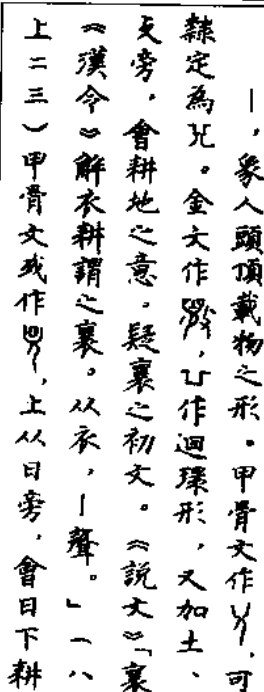 丨，象人頭頂載物之形。甲骨文作，可
隸定為兕。金文作，凵作迴環形，又加土、
攴旁，會耕地之意。疑襄之初文。《說文》「襄
《漢令》解衣耕謂之襄。从衣，丨聲。」（八
上二三）甲骨文或作，上从日旁，會日下耕